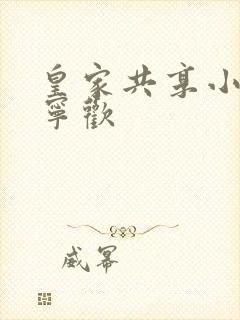 皇家共享小
寧歡
威幂